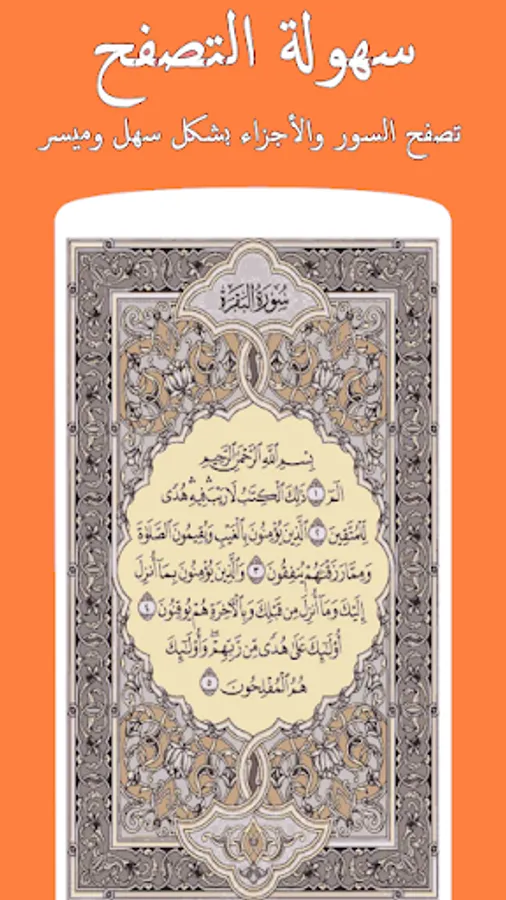 سهولة التصفح
تصفح السور والأجزاء بشكل سهل وميسر
سُورَةُ البَقَرَةِ
بِسْمِ ٱللَّهِ ٱلرَّحْمَٰنِ ٱلرَّحِيمِ
الٓمٓ ١ ذَٰلِكَ ٱلْكِتَٰبُ لَا رَيْبَ ۛ فِيهِ ۛ هُدًى
لِّلْمُتَّقِينَ ٢ ٱلَّذِينَ يُؤْمِنُونَ بِٱلْغَيْبِ وَيُقِيمُونَ ٱلصَّلَوٰةَ
وَمِمَّا رَزَقْنَٰهُمْ يُنفِقُونَ ٣ وَٱلَّذِينَ يُؤْمِنُونَ بِمَآ أُنزِلَ
إِلَيْكَ وَمَآ أُنزِلَ مِن قَبْلِكَ وَبِٱلْءَاخِرَةِ هُمْ يُوقِنُونَ ٤
أُو۟لَٰٓئِكَ عَلَىٰ هُدًى مِّن رَّبِّهِمْ ۖ وَأُو۟لَٰٓئِكَ
هُمُ ٱلْمُفْلِحُونَ ٥